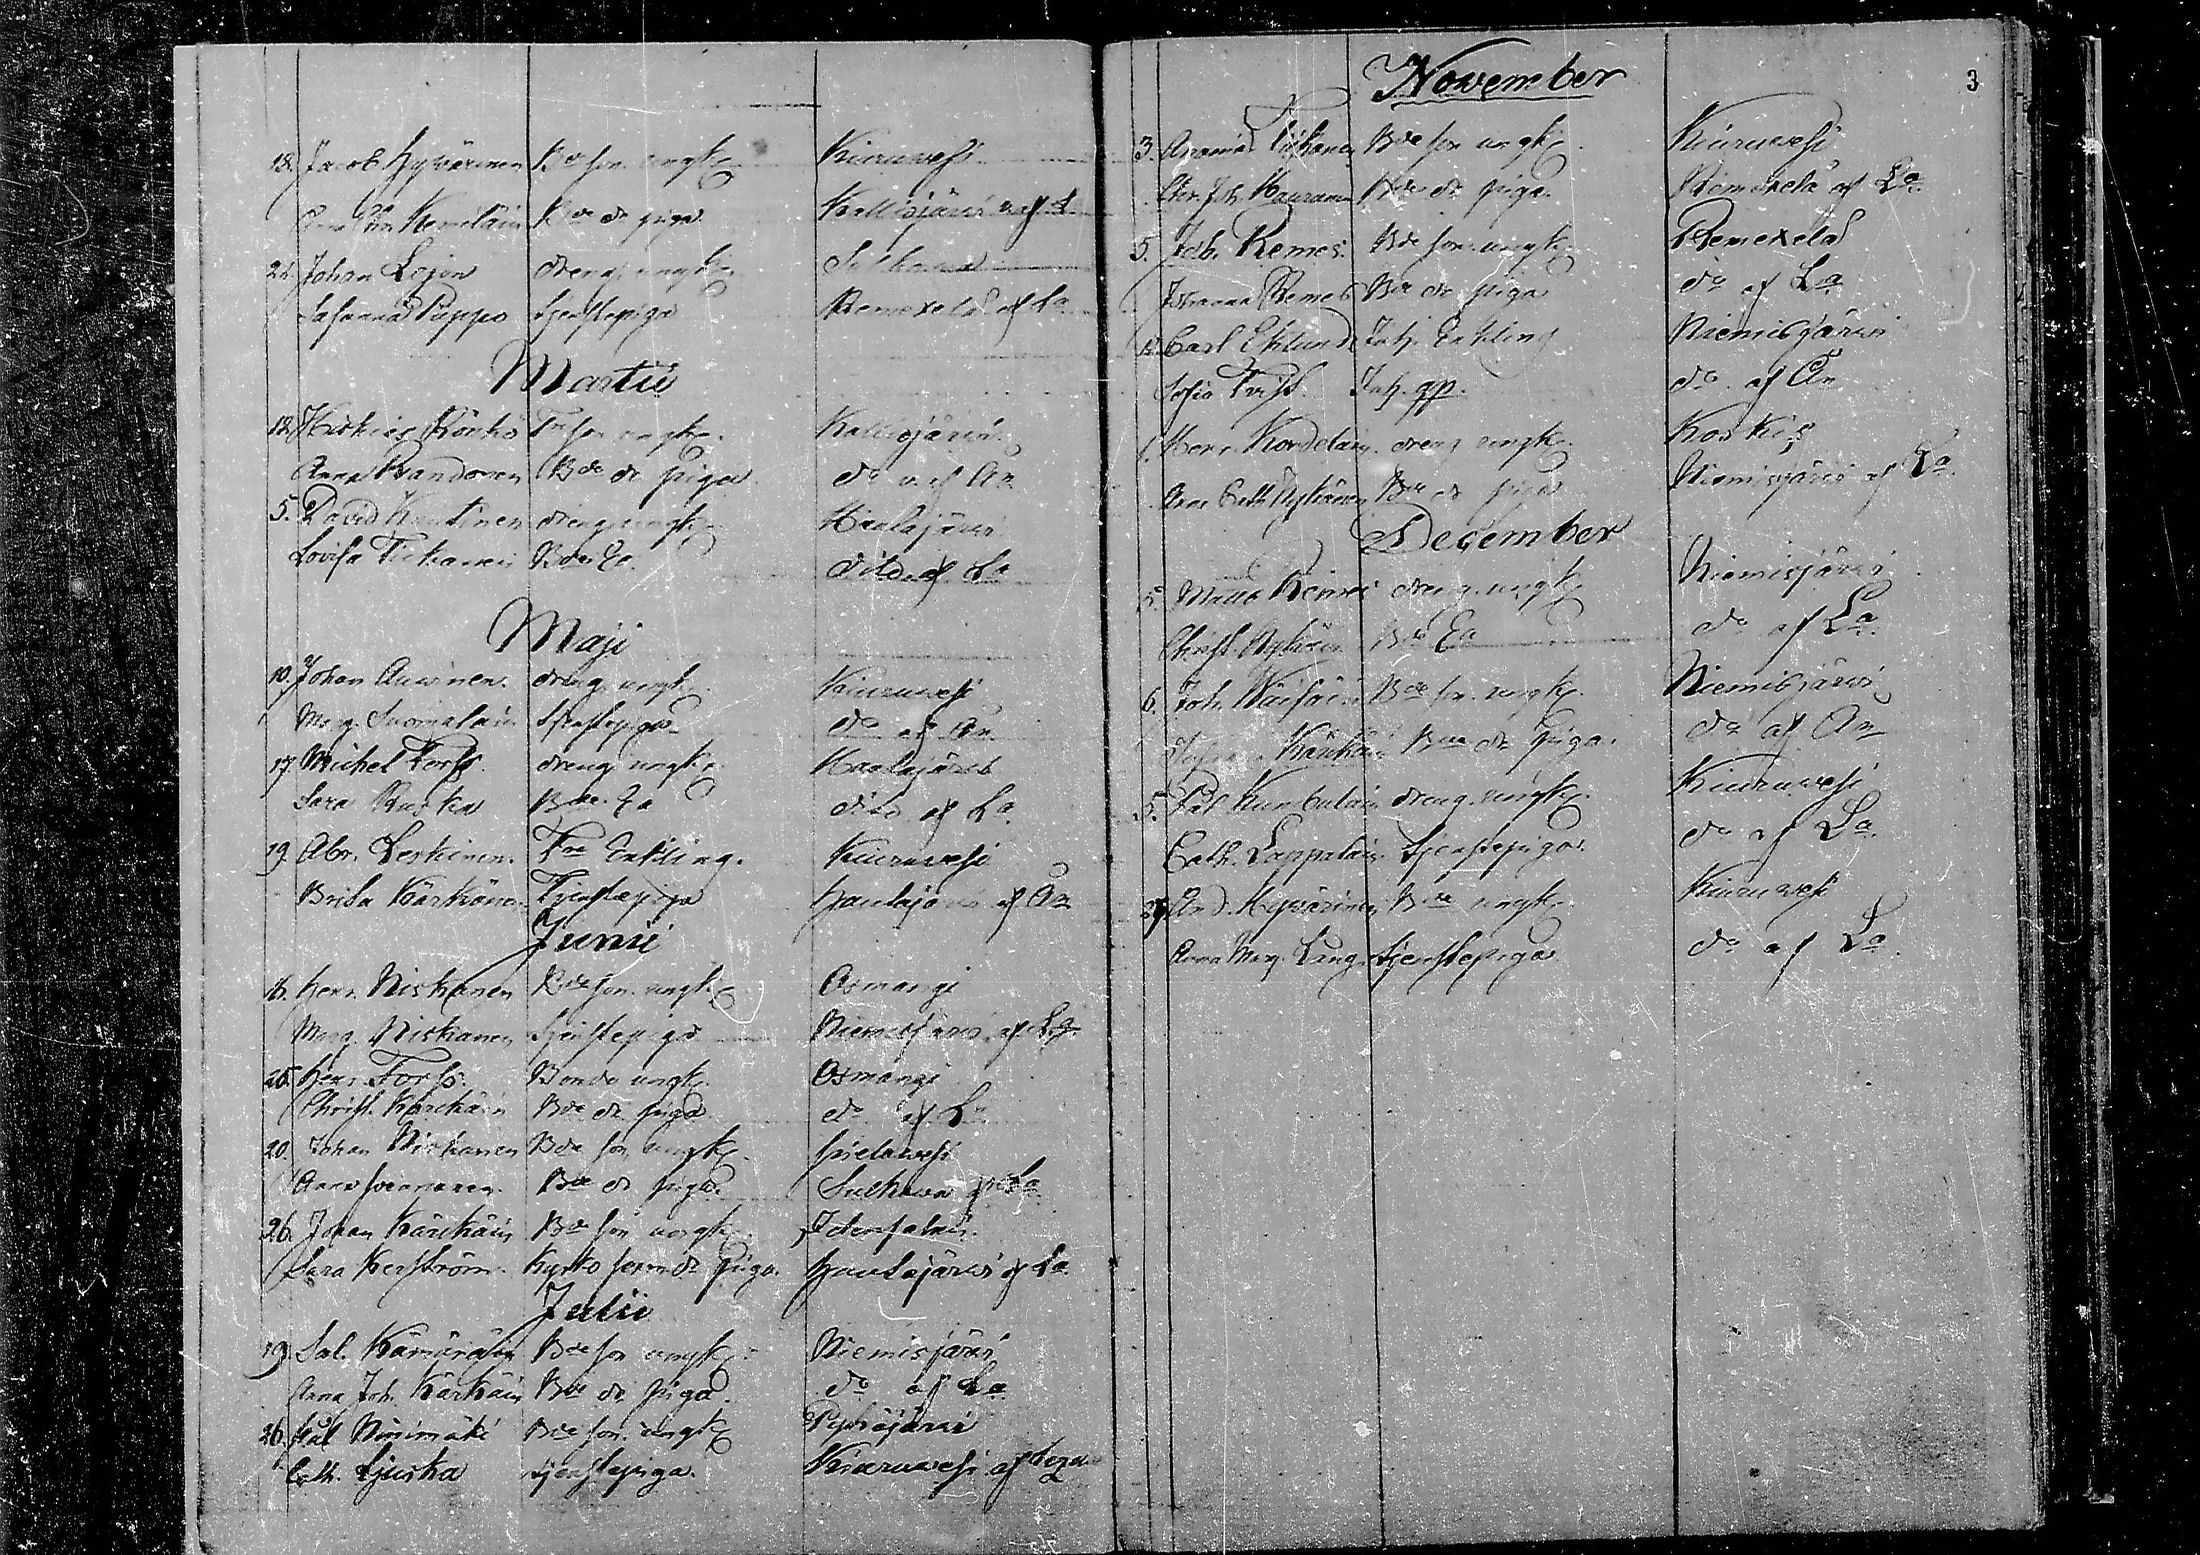 18. Jacob Hyvärinen Bde son ungk. Kiuruwesi
Anna Chr. Remeläin Bde dr piga Kallisjärvi af La
24. Johan Lojon dreng ungk. Sulkava
Susanna Puppo tjenstepiga Remexelä af La
Martii
18. Hiskias Körkö Tn son ungk. Kallisjärvi
Anna Pandonen Bde dr piga do af An
5. David Huutinen dreng ungk. Haalajärvi
Lovisa Tickanen Bde Ea dito af La
Maji
10. Johan Auvinen dreng ungk. Kiuruwesi
Marg. Suomalain tjenstepiga do af An
17. Michel Forss dreng ungk. Haalajärvi
Sara Ruska Bde Ea dito af La
19. Abr. Leskinen Tre Enkling. Kiuruwesi
Brita Kärkänen Tjenstepiga Haulajärvi af An
Junii
16. Henr. Niskanen Bde son ungk. Osmangi
Marg. Niskanen tjenstepiga Niemisjärvi af La
25. Henr. Forss. Bonde ungk. Osmangi
Christ. Kärkäin Bde dr piga do af La
20. Johan Niskanen Bde son ungk. Pielavesi
Anna Bde dr piga Sulkava af La
26. Johan Kärkkäin Bde son ungk. Idensalmi
Sara Kerström Kyrko dr Piga. Haulajärvi af La
Julii
19. Sal. Kämäräin Bde son ungk. Niemisjärvi
Anna Joh. Kärkäin Bde dr piga. do af La
26. Pål Niinimäki Bde son ungk. Pyhäjärvi
Cath. Ljuska tjenstepiga. Kiuruwesi af
3
November
3. Tiikanen Bde son ungk. Kiuruwesi
Chr. Joh. Kauranen Bde dr piga. Remexelä af La
5. Joh. Remes Bde son ungk. Remexelä
Johanna Remes Bde dr piga do af La
Carl Eklund Inh. Enkling Niemisjärvi
Sofia Tvist. Inh. qp. do af An
1. Henr. Kordelain. dreng ungk. Koskis
Anna Cath. Nykänen Bde dr piga Niemisjärvi af La
December
5. Matts Remes dreng ungk. Niemisjärvi
Christ. Nykänen Bde Ea do af La
6. Joh. Väisäin Bde son ungk. Niemisjärvi
Kärkäin Bde dr piga. do af An
5. Pål Kumbulain dreng ungk. Kiuruwesi
Cath. Lappalain. tjenstepiga. do af La
27. And. Hyvärinen Bde ungk. Kiuruwesi
Anna Marg. Lång tjenstepiga do af La.